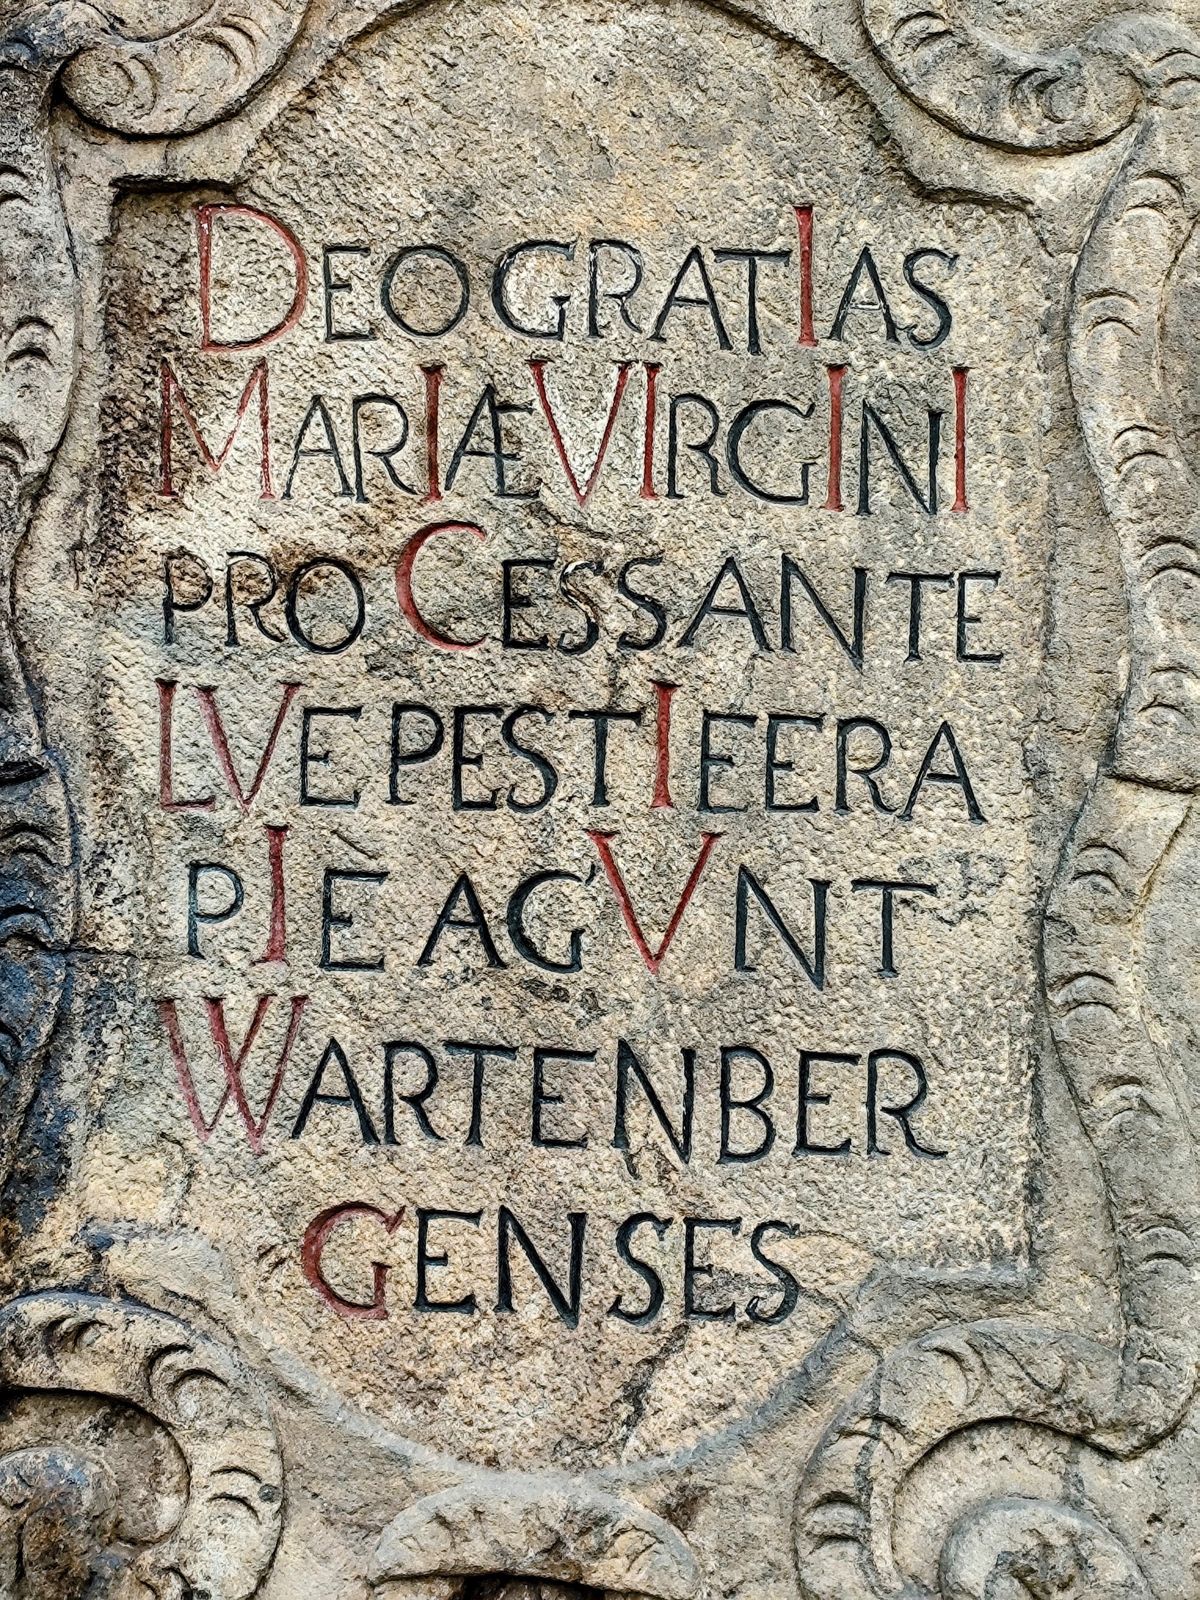 DEO GRATIAS
MARIÆ VIRGINI
PRO CESSANTE
LVE PESTIEERA
PIE AGVNT
WARTENBER
GENSES